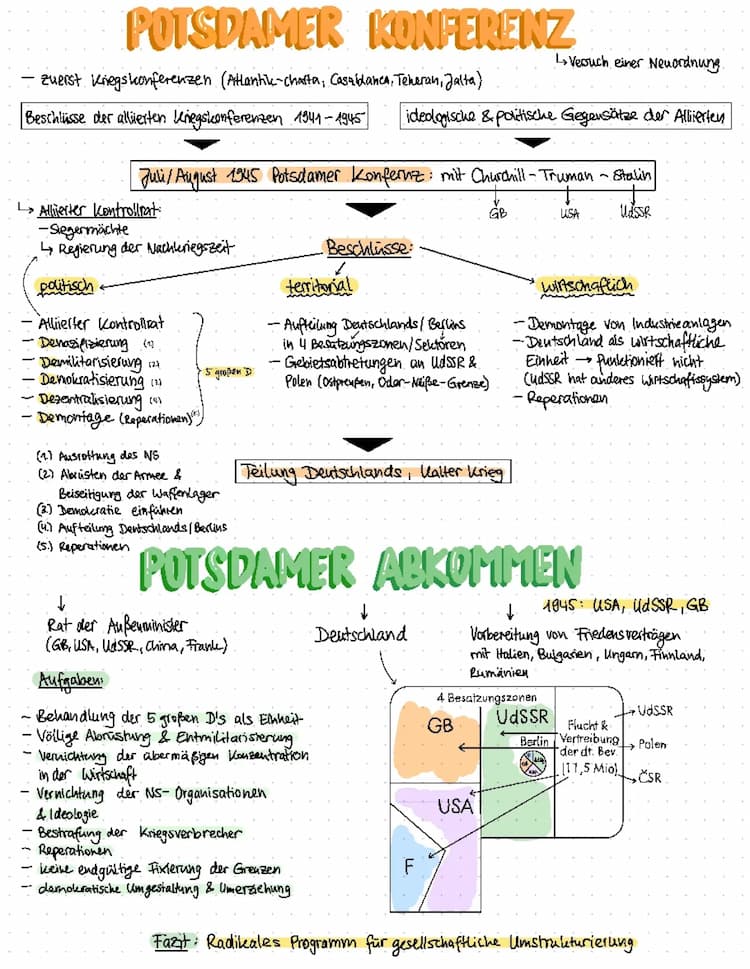 POTSDAMER KONFERENZ
↳ Versuch einer Neuordnung
– zuerst Kriegskonferenzen (Atlantik-charta, Casablanca, Teheran, Jalta)
Beschlüsse der alliierten Kriegskonferenzen 1941–1945
ideologische & politische Gegensätze der Alliierten
Juli/August 1945 Potsdamer Konferenz: mit Churchill – Truman – Stalin
GB USA UdSSR
↳ Alliierter Kontrollrat:
– Siegermächte
↳ Regierung der Nachkriegszeit
Beschlüsse:
politisch
– Alliierter Kontrollrat
– Denazifizierung (1)
– Demilitarisierung (2)
– Demokratisierung (3)
– Dezentralisierung (4)
– Demontage (Reparationen) (5)
5 großen D
territorial
– Aufteilung Deutschlands/Berlins
in 4 Besatzungszonen/Sektoren
– Gebietsabtretungen an UdSSR &
Polen (Ostpreußen, Oder-Neiße-Grenze)
wirtschaftlich
– Demontage von Industrieanlagen
– Deutschland als wirtschaftliche
Einheit → funktioniert nicht
(UdSSR hat anderes Wirtschaftssystem)
– Reperationen
(1) Ausrottung des NS
(2) Abrüsten der Armee &
Beiseitigung der Waffenlager
(3) Demokratie einführen
(4) Aufteilung Deutschlands/Berlins
(5) Reperationen
Teilung Deutschlands, Kalter Krieg
POTSDAMER ABKOMMEN
1945: USA, UdSSR, GB
Rat der Außenminister
(GB, USA, UdSSR, China, Frank.)
Deutschland
Vorbereitung von Friedensverträgen
mit Italien, Bulgarien, Ungarn, Finnland,
Rumänien
Aufgaben:
– Behandlung der 5 großen D's als Einheit
– Völlige Abrüstung & Entmilitarisierung
– Vernichtung der übermäßigen Konzentration
in der Wirtschaft
– Vernichtung der NS-Organisationen
& Ideologie
– Bestrafung der Kriegsverbrecher
– Reperationen
– keine endgültige Fixierung der Grenzen
– demokratische Umgestaltung & Umerziehung
4 Besatzungszonen
GB
UdSSR
Berlin
USA
F
Flucht &
Vertreibung
der dt. Bev.
(11,5 Mio)
UdSSR
Polen
ČSR
Fazit: Radikales Programm für gesellschaftliche Umstrukturierung